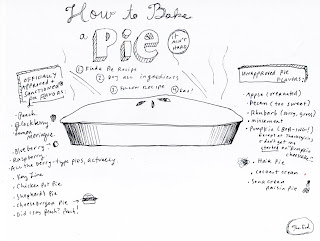 How to Bake
a Pie
IT AIN'T HARD
① Find a Pie Recipe
② Buy all ingredients
③ Follow Recipe
④ Eat!
OFFICIALLY
APPROVED &
SANCTIONED
PIE FLAVORS:
- Peach
- Blackberry
- Lemon
Meringue
- Blueberry
- Raspberry
- All the berry-type pies, actually
- Key Lime
- Chicken Pot Pie
- Shepherd's Pie
- Cheeseburger Pie
- Did I say Peach? Peach!
UNAPPROVED PIE
FLAVORS:
- Apple (overrated)
- Pecan (too sweet)
- Rhubarb (
- Mincemeat
- Pumpkin
except at Thanksgiving
don't get me
started on "pumpkin
cheesecake"!
- Hair Pie
- coconut cream
- Sour cream
raisin pie
The End